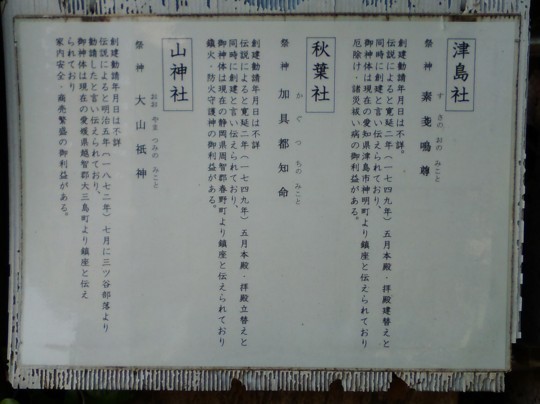 津島社
祭神 素戔嗚尊
すさのおのみこと
創建勧請年月日は不詳。
伝説によると寛延二年(一七四九年)五月本殿・拝殿建替えと
同時に創建と言い伝えられており、
御神体は現在の愛知県津島市神明町より鎮座と伝えられており
厄除け・諸災祓い病の御利益がある。
秋葉社
祭神 加具都知命
かぐつちのみこと
創建勧請年月日は不詳
伝説によると寛延二年(一七四九年)五月本殿・拝殿立替えと
同時に創建と言い伝えられており、
御神体は現在の静岡県周智郡春野町より鎮座と伝えられており
鎮火・防火守護神の御利益がある。
山神社
祭神 大山祇神
おおやまつみのみこと
創建勧請年月日は不詳。
伝説によると明治五年(一八七二年)七月に三ツ谷部落より
勧請したと言い伝えられており、
御神体は現在の愛媛県越智郡大三島町より鎮座と伝え
られており
家内安全・商売繁盛の御利益がある。